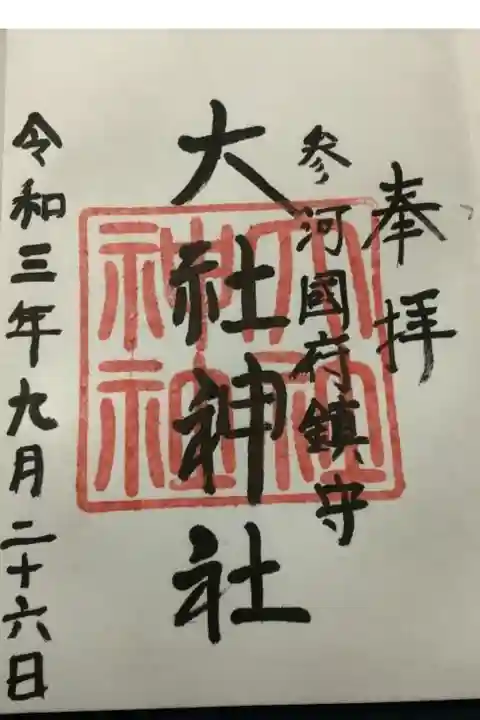 奉拝
参河國府鎮守
大社神社
大社
神社
令和三年九月二十六日